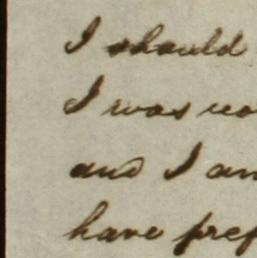 I should
I was
and I am
have pref